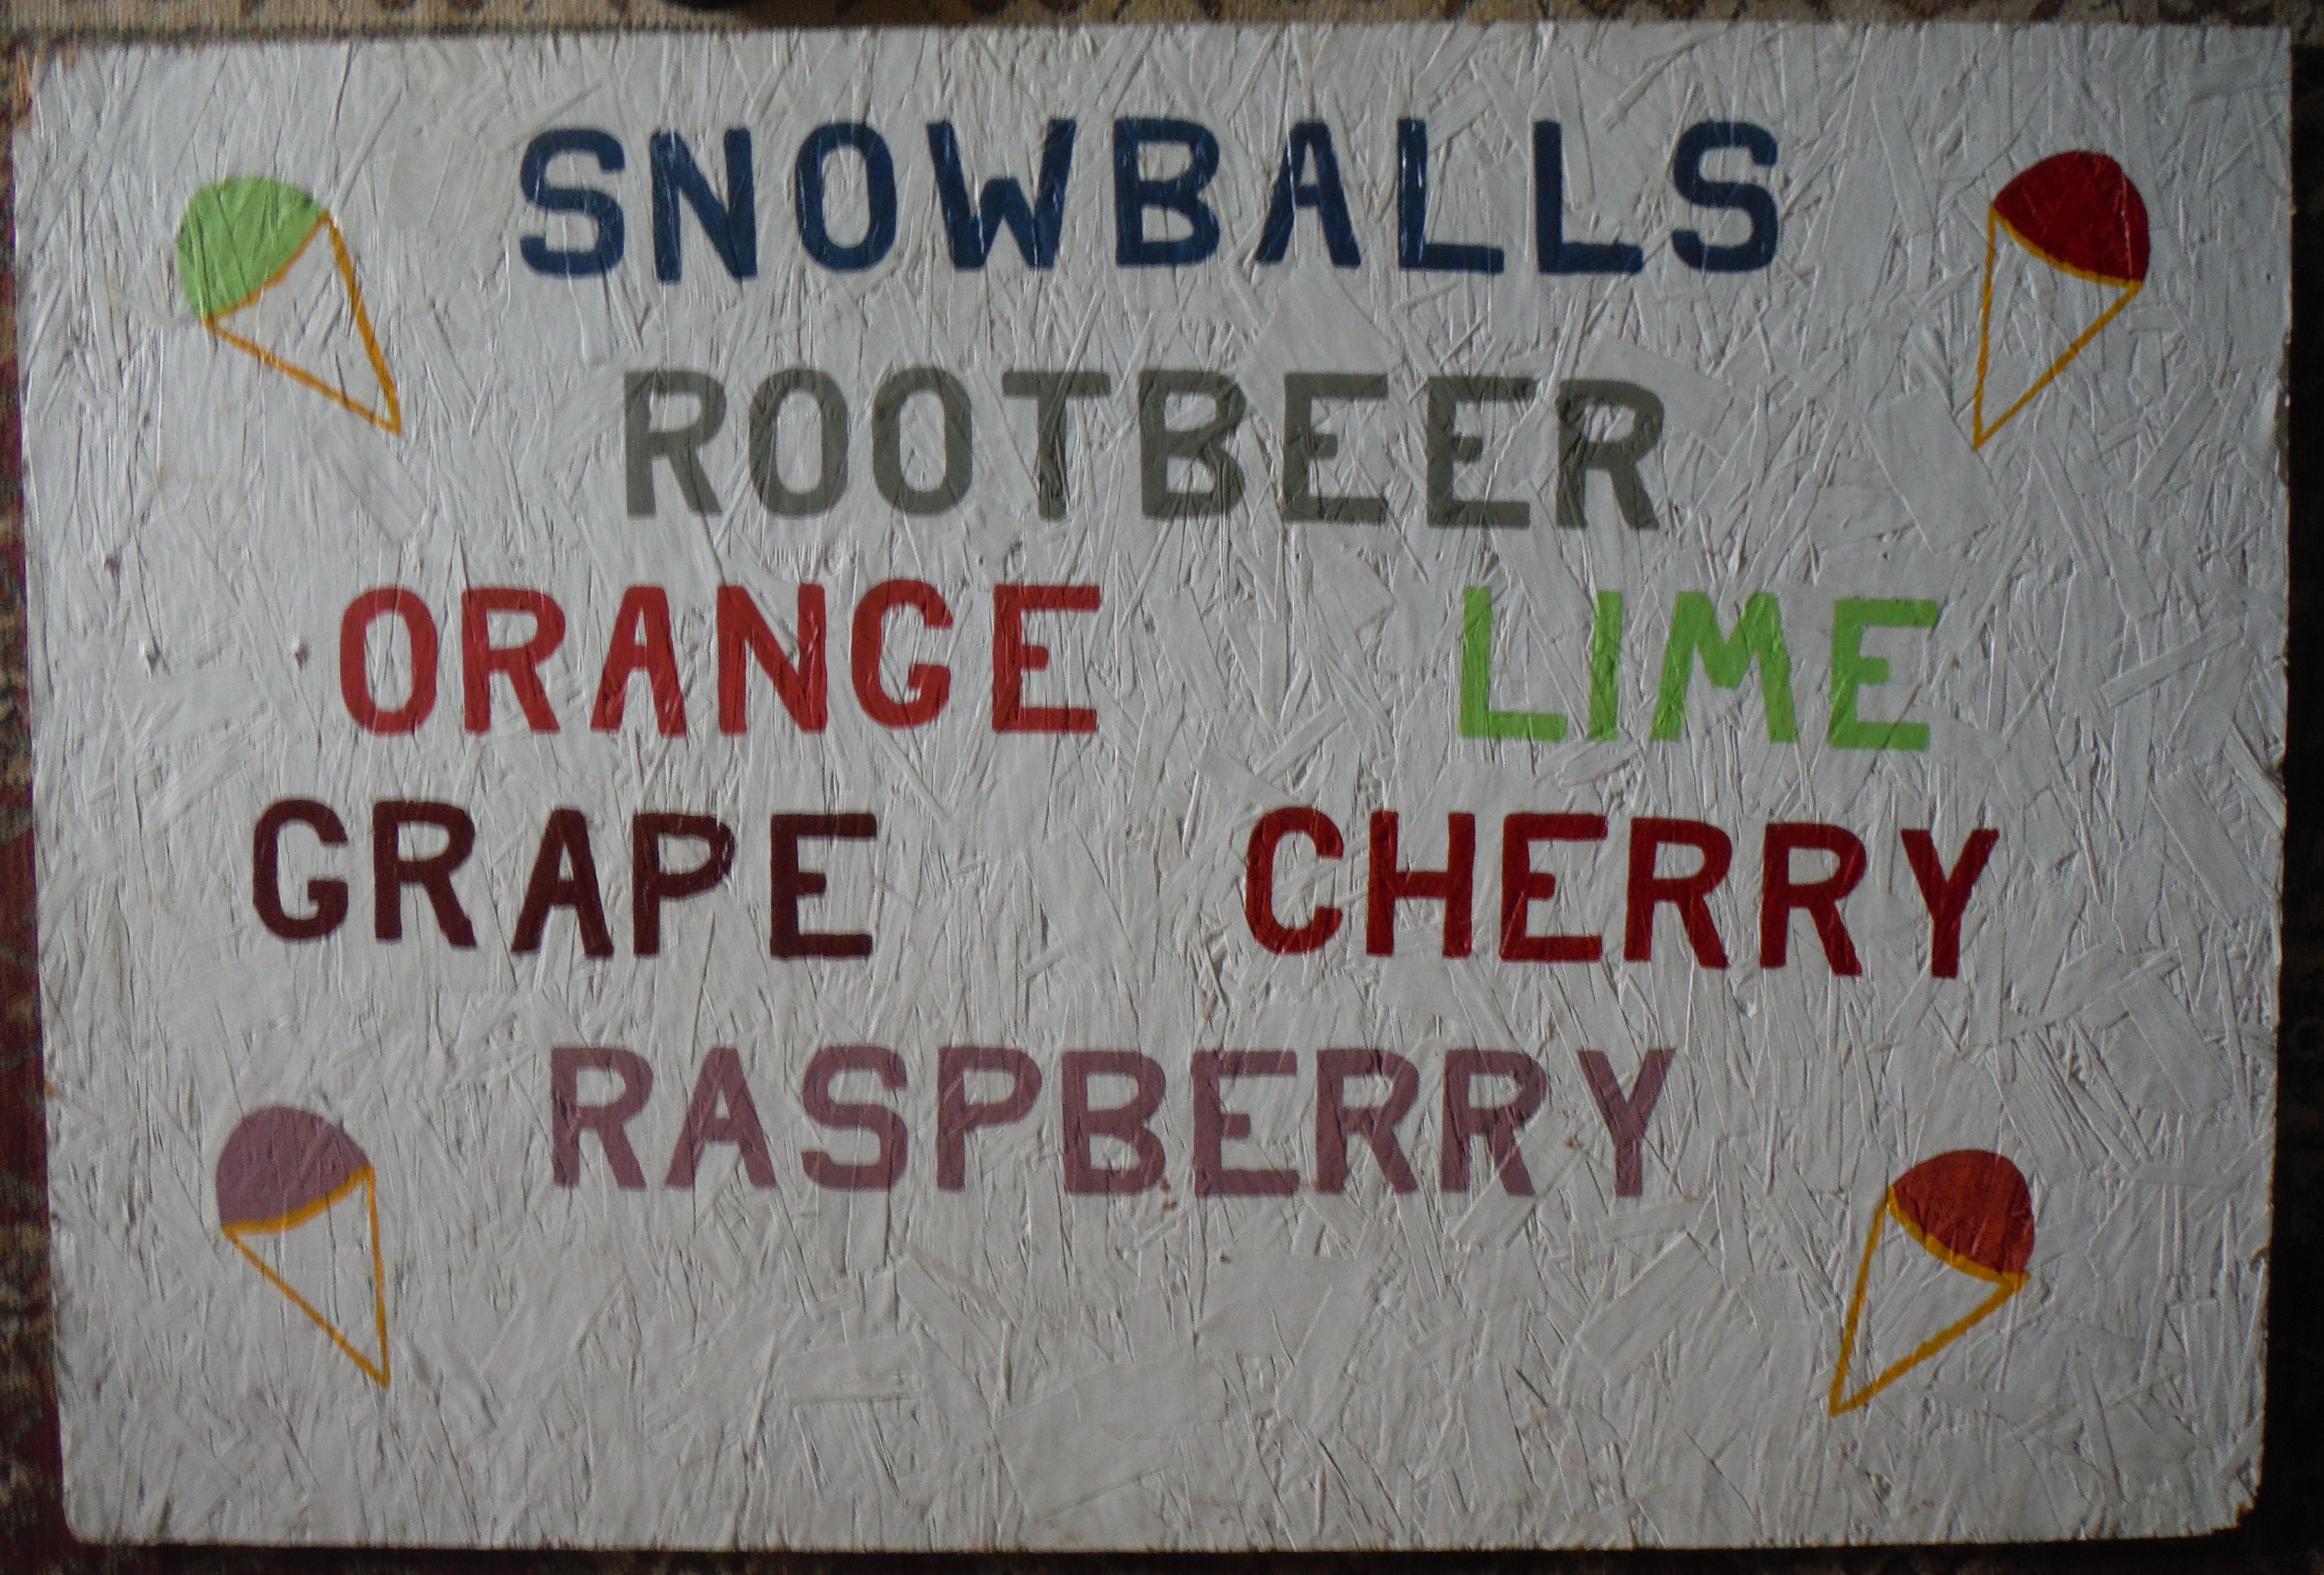 SNOWBALLS
ROOTBEER
ORANGE LIME
GRAPE CHERRY
RASPBERRY